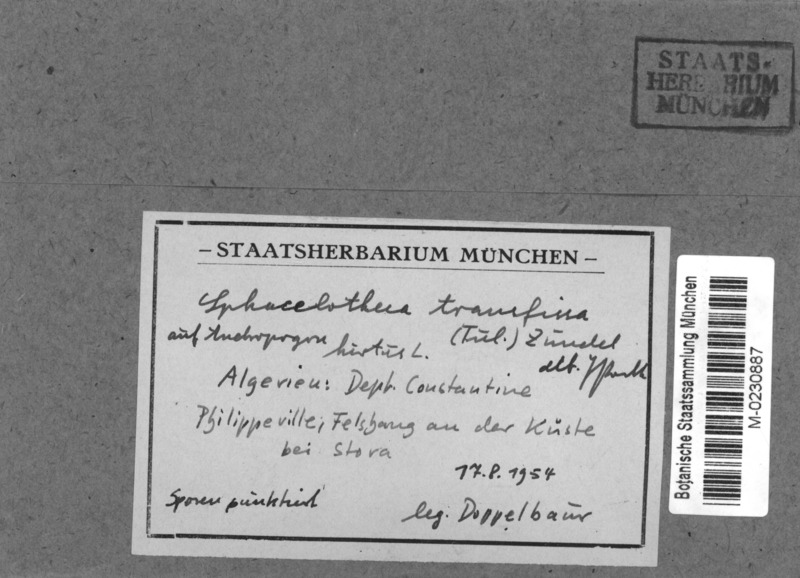 STAATS-
HERBARIUM
MÜNCHEN
– STAATSHERBARIUM MÜNCHEN –
Sphacelotheca transfissa
(Tul.) Zundel
auf Andropogon hirtus L.
det.
Algerien: Dept. Constantine
Philippeville, Felshang an der Küste
bei Stora
17.8.1954
Sporen punktiert
leg. Doppelbaur
Botanische Staatssammlung München
M-0230887